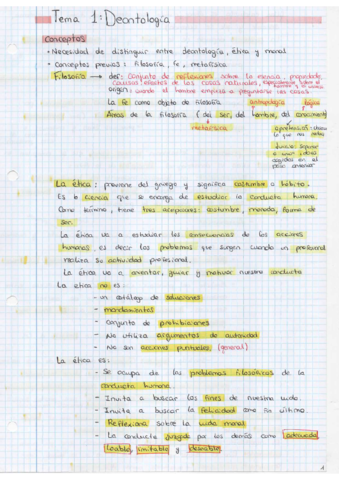 Tema 1: Deontología
Conceptos
· Necesidad de distinguir entre deontología, ética y moral
· Conceptos previos: filosofía, fe, metafísica
Filosofía → def: Conjunto de reflexiones sobre la esencia, propiedades,
causas y efectos de las cosas naturales, especialmente sobre el
hombre y el universo
origen: cuando el hombre empieza a preguntarse las cosas
La fe como objeto de filosofía antropología lógica
Áreas de la filosofía (del ser, del hombre, del conocimiento
metafísica
lo que nos rodea
Juicio: separar
o unir ideas
cogidas en el
paso anterior
La ética: proviene del griego y significa costumbre o hábito.
Es la ciencia que se encarga de estudiar la conducta humana.
Como término, tiene tres acepciones: costumbre, morada, forma de
ser.
La ética va a estudiar las consecuencias de las acciones
humanas es decir los problemas que surgen cuando un profesional
realiza su actividad profesional.
La ética va a orientar, guiar y motivar nuestra conducta
La ética no es:
- un catálogo de soluciones
- mandamientos
- Conjunto de prohibiciones
- No utiliza argumentos de autoridad
- No son acciones puntuales (general)
La ética es:
- Se ocupa de los problemas filosóficos de la
conducta humana.
- Invita a buscar los fines de nuestra vida
- Invita a buscar la felicidad como fin último.
- Reflexiona sobre la vida moral
- La conducta juzgada por los demás como adecuada,
loable, imitable y deseable.